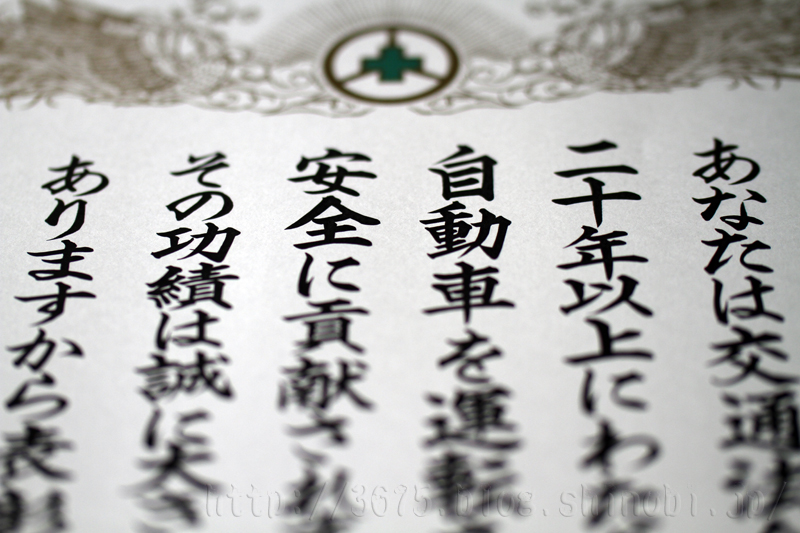 あなたは交通法
二十年以上にわた
自動車を運転
安全に貢献され
その功績は誠に大き
ありますから表彰
https://3675.blog.shinobi.jp/